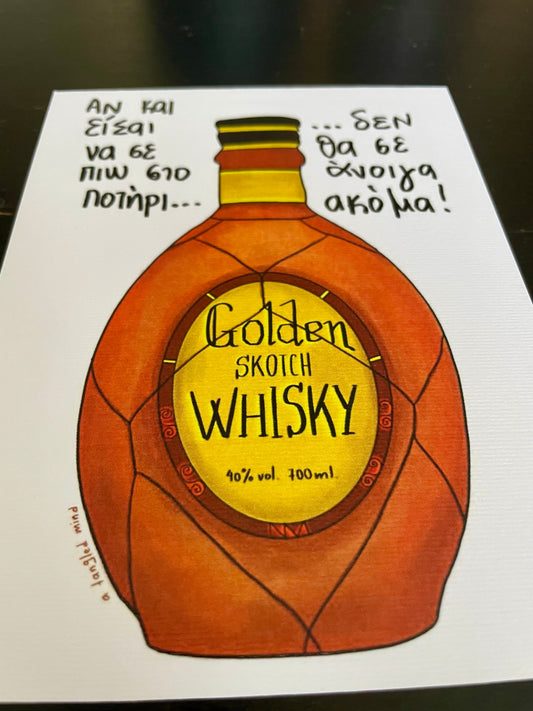 ΑΝ ΚΑΙ
ΕίΣΑΙ
ΝΑ ΣΕ
ΠΙΩ ΣΤΟ
ΠΟΤΉΡΙ...
...ΔΕΝ
ΘΑ ΣΕ
ΆΝΟΙΓΑ
ΑΚΌΜΑ!
Golden
SKOTCH
WHISKY
40% vol. 700ml.
a tangled mind